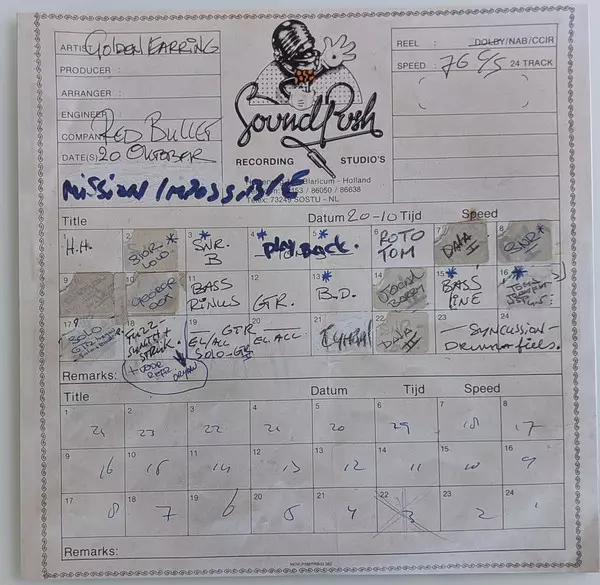 ARTIST GOLDEN EARRING
PRODUCER :
ARRANGER :
ENGINEER
COMPANY RED BULLET
DATE(S) 20 OKTOBER
SoundPush
RECORDING STUDIO'S
Blaricum - Holland
/ 86050 / 86638
Telex: 73249 SOSTU - NL
REEL : DOLBY/NAB/CCIR
SPEED : 76 C/S 24 TRACK
MISSION IMPOSSIBLE
Title Datum 20-10 Tijd Speed
1 2 3 4 5 6 7 8
H.H. SNR. B Play back. ROTO TOM DATA I SNR*
9 10 11 12 13 14 15 16
GEORGE BASS RINUS GTR. B.D. BARRY BASS LINE
17 18 19 20 21 22 23
SOLO FUZZ GTR EL/ACC SOLO-GTR EL.ACC CYMBAL DATA II - SYNCUSSION - DRUMFILLS.
+ VOOR REFR
Remarks:
Title Datum Tijd Speed
1 2 3 4 5 6 7 8
24 23 22 21 20 19 18 17
9 10 11 12 13 14 15 16
16 15 14 13 12 11 10 9
17 18 19 20 21 22 23 24
8 7 6 5 4 3 2 1
Remarks: